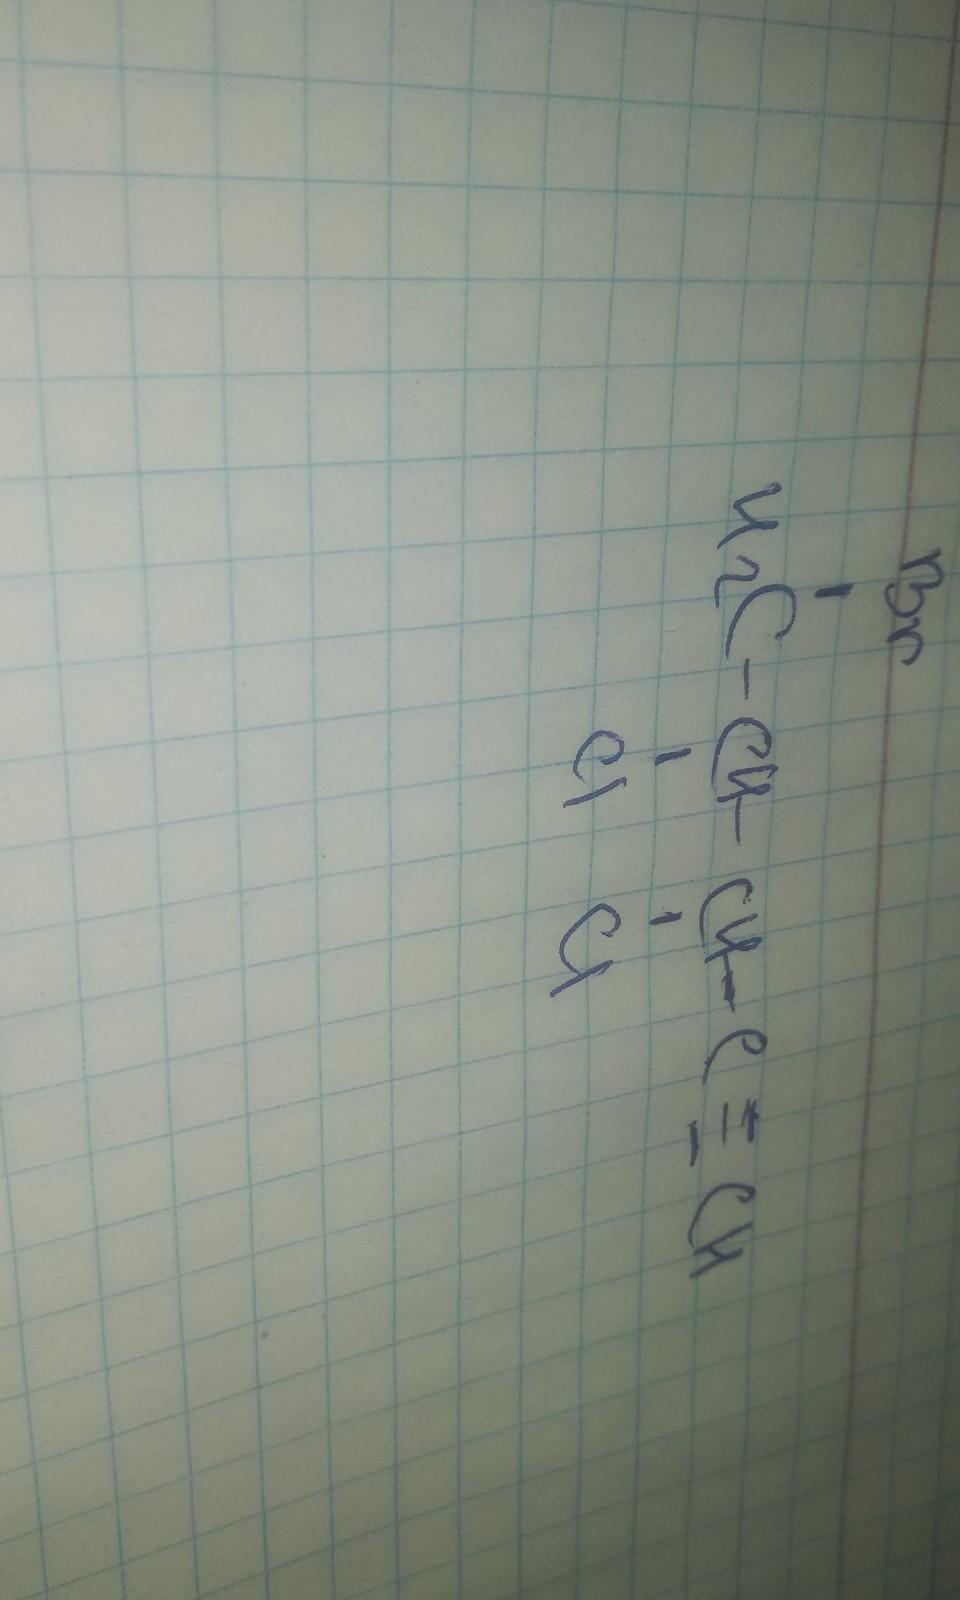 Br
H2C-CH-CH-C≡CH
Cl Cl